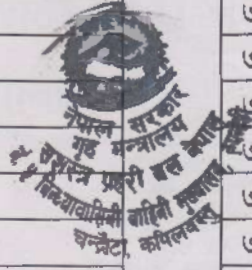 नेपाल सरकार
गृह मन्त्रालय
सशस्त्र प्रहरी बल नेपाल
नं. ५ बिन्ध्यावासिनी बाहिनी मुख्यालय
चन्द्रौटा, कपिलवस्तु